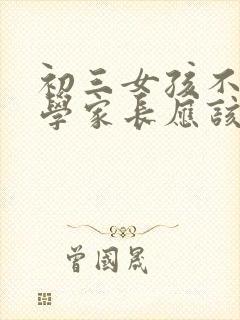 初三女孩不
學家長應該
曾國晟